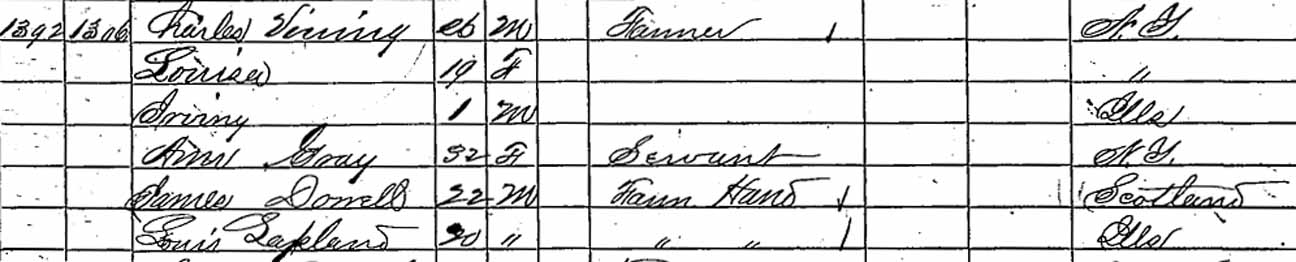 1392 1306 Charles Vining 26 M Farmer N.Y.
Louisa 19 F "
Irving 1 M Ills
Ann Gray 32 F Servant N.Y.
James Dorrell 22 M Farm Hand Scotland
Louis Lapland 20 " " " Ills